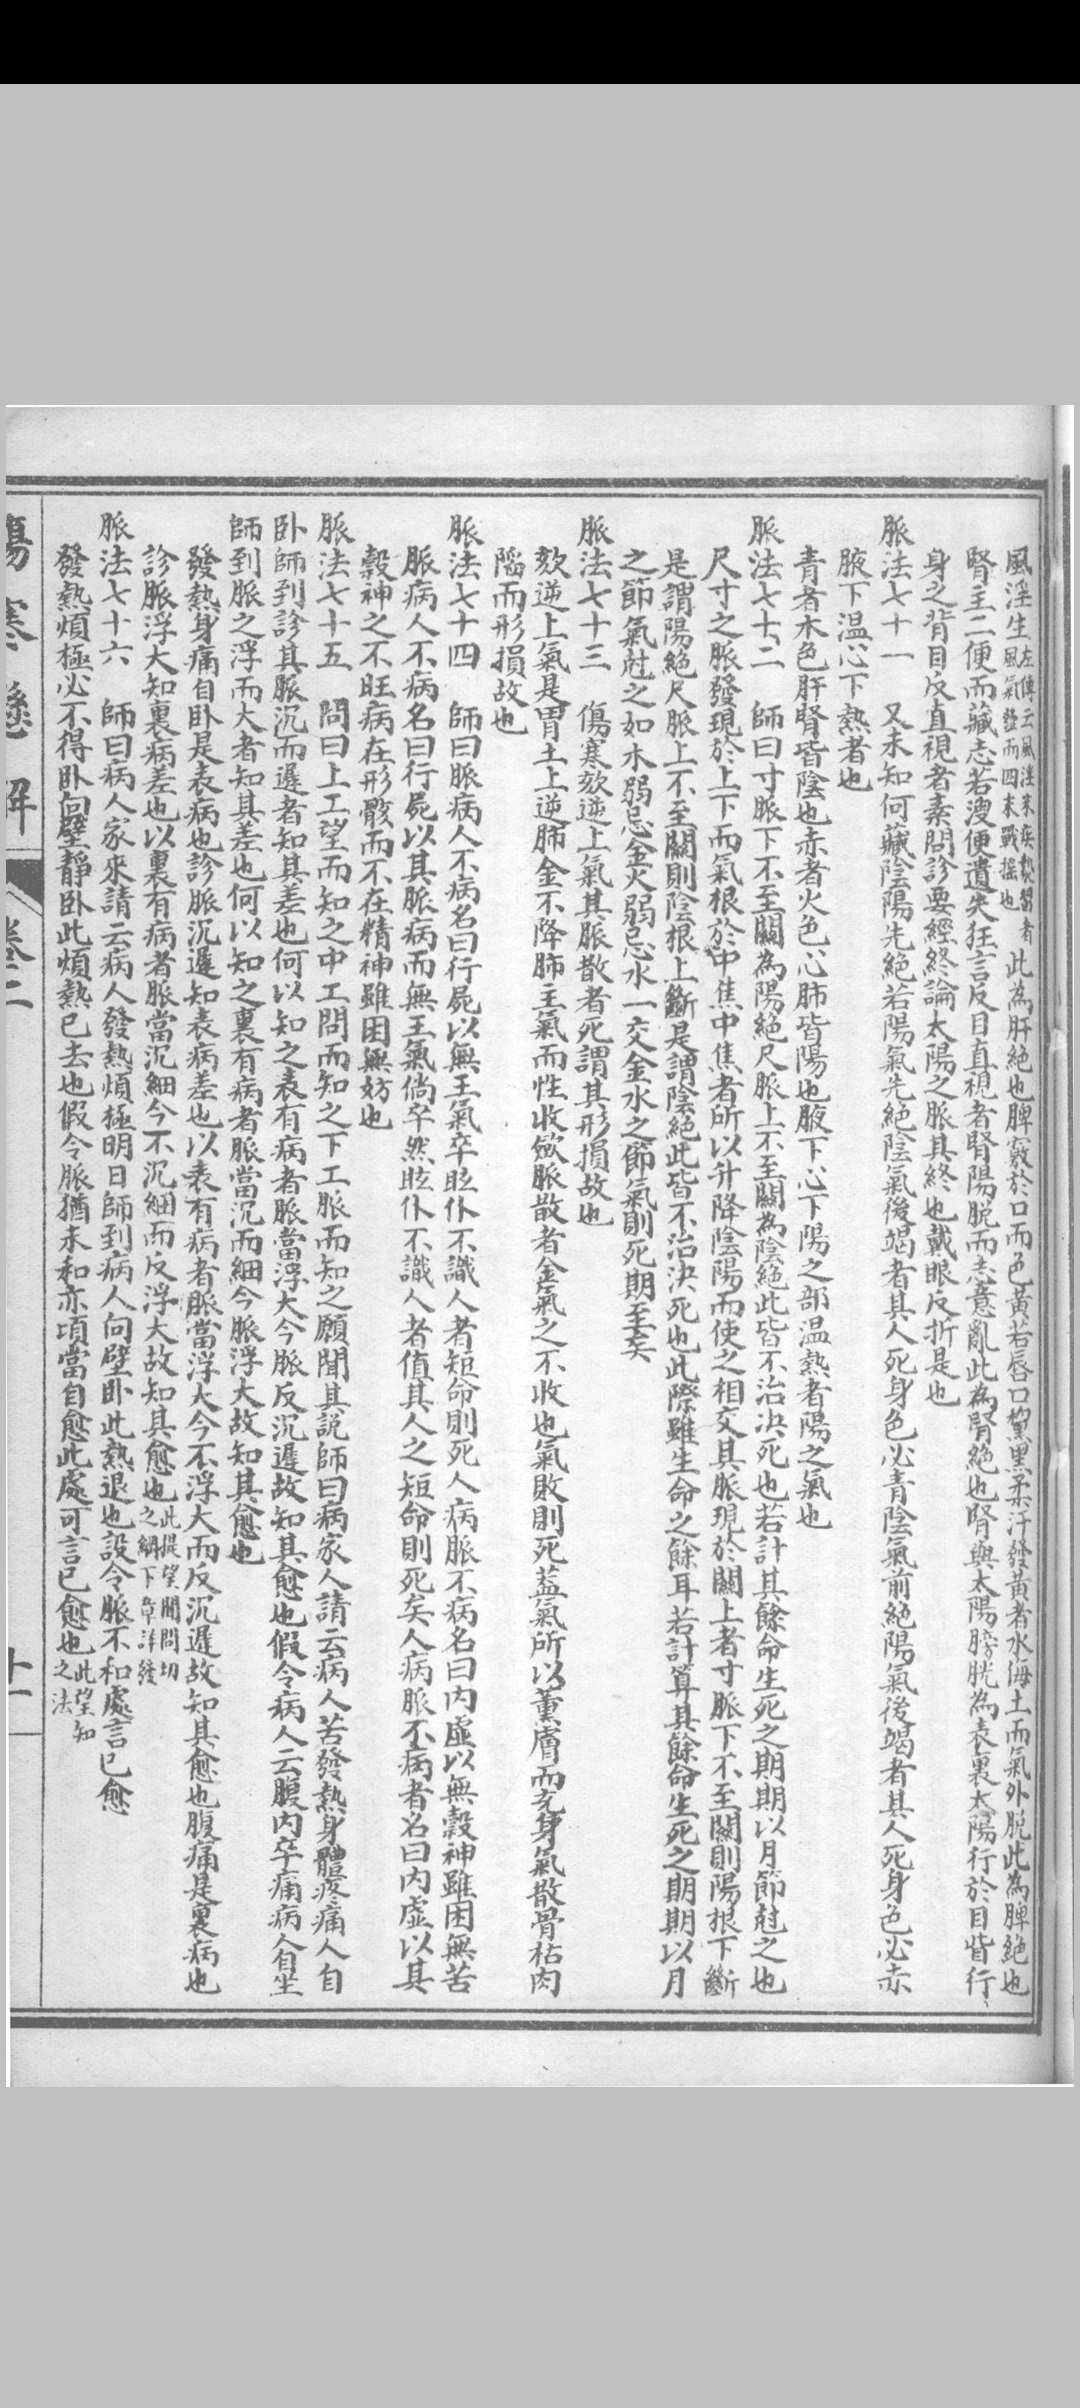 風淫生左傳云風淫末疾熱腎者風氣盤而四末戰搖也此為肝絕也脾竅於口而色黃若唇口黧黑柔汗發黃者水侮土而氣外脫此為脾絕也
腎主二便而藏志若溲便遺失狂言反目直視者腎陽脫而志意亂此為腎絕也腎與太陽膀胱為表裏太陽行於目眥行
身之背目反直視者素問診要經終論太陽之脈其終也戴眼反折是也
脈法七十一　又未知何藏陰陽先絕若陽氣先絕陰氣後竭者其人死身色必青陰氣前絕陽氣後竭者其人死身色必赤
腋下温心下熱者也
青者木色肝腎皆陰也赤者火色心肺皆陽也腋下心下陽之部温熱者陽之氣也
脈法七十二　師曰寸脈下不至關為陽絕尺脈上不至關為陰絕此皆不治決死也若計其餘命生死之期期以月節尅之也
尺寸之脈發現於上下而氣根於中焦中焦者所以升降陰陽而使之相交其脈現於關上者寸脈下不至關則陽根下斷
是謂陽絕尺脈上不至關則陰根上斷是謂陰絕此皆不治決死也此際雖生命之餘耳若計算其餘命生死之期期以月
之節氣尅之如木弱忌金火弱忌水一交金水之節氣則死期至矣
脈法七十三　傷寒欬逆上氣其脈散者死謂其形損故也
欬逆上氣是胃土上逆肺金不降肺主氣而性收斂脈散者金氣之不收也氣敗則死蓋氣所以薰膚而充身氣散骨枯肉
陷而形損故也
脈法七十四　師曰脈病人不病名曰行屍以無王氣卒眩仆不識人者短命則死人病脈不病名曰內虛以無穀神雖困無苦
脈病人不病名曰行屍以其脈病而無王氣倘卒然眩仆不識人者值其人之短命則死矣人病脈不病者名曰內虛以其
穀神之不旺病在形骸而不在精神雖困無妨也
脈法七十五　問曰上工望而知之中工問而知之下工脈而知之願聞其說師曰病家人請云病人苦發熱身體疼痛人自
卧師到診其脈沉而遲者知其差也何以知之表有病者脈當浮大今脈反沉遲故知其愈也假令病人云腹內卒痛病人自坐
師到脈之浮而大者知其差也何以知之裏有病者脈當沉而細今脈浮大故知其愈也
發熱身痛自卧是表病也診脈沉遲知表病差也以表有病者脈當浮大今不浮大而反沉遲故知其愈也腹痛是裏病也
診脈浮大知裏病差也以裏有病者脈當沉細今不沉細而反浮大故知其愈也此提望聞問切之綱下章詳發
脈法七十六　師曰病人家來請云病人發熱煩極明日師到病人向壁卧此熱退也設令脈不和處言已愈
發熱煩極必不得卧向壁靜卧此煩熱已去也假令脈猶未和亦頃當自愈此處可言已愈也此望知之法
傷寒懸解　卷二　十一